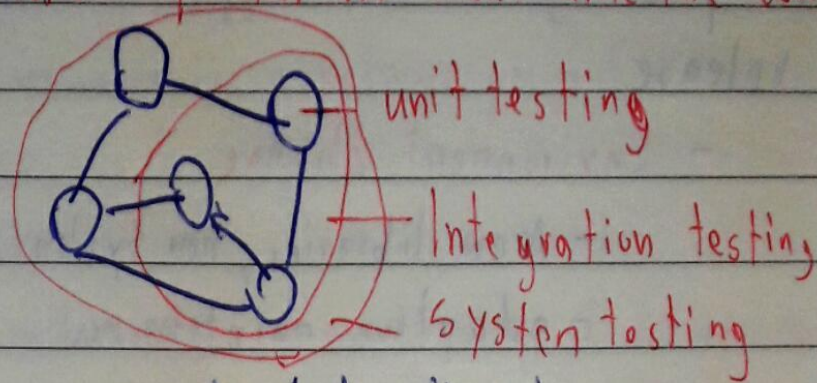 unit testing
Integration testing
System testing